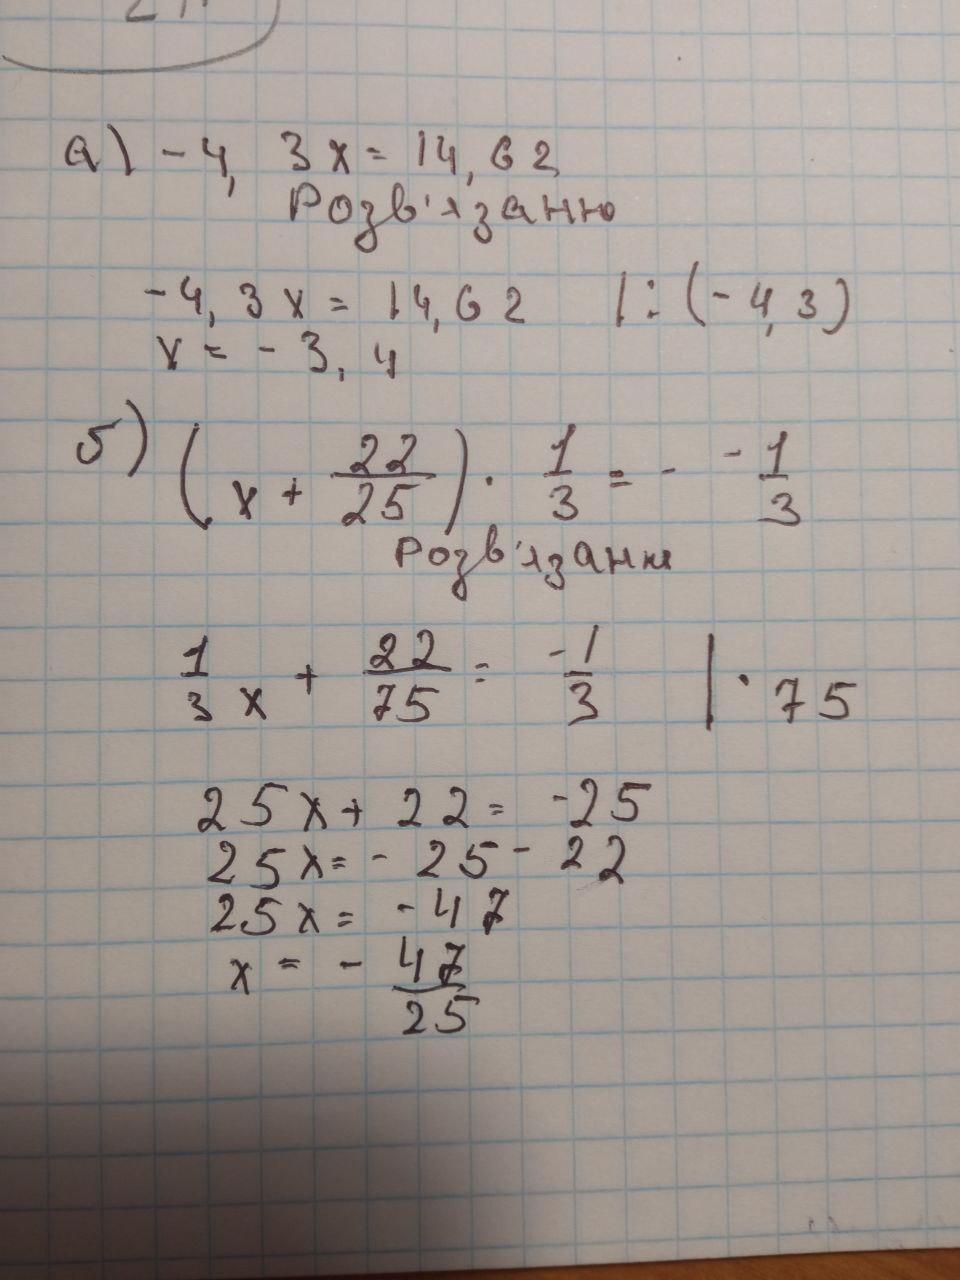 а) -4, 3x = 14,62
Розв'язання
-4,3x = 14,62 |:(-4,3)
x = -3,4
б) (x + 22/25) · 1/3 = - -1/3
Розв'язанн
1/3 x + 22/75 = -1/3 | · 75
25x + 22 = -25
25x = -25 - 22
25x = -47
x = - 47/25